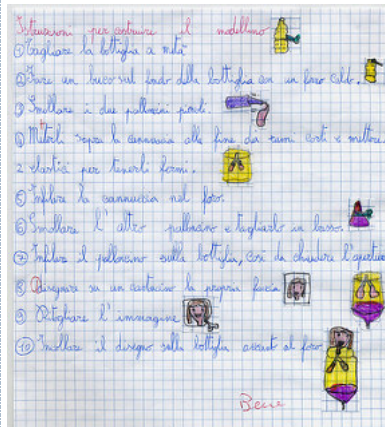 Istruzioni per costruire il modellino
① Tagliare la bottiglia a metà
② Fare un buco sul fondo della bottiglia con un ferro caldo.
③ Smollare i due palloncini piccoli.
④ Metterli sopra la cannuccia alla fine dei rami corti e mettere
2 elastici per tenerli fermi.
⑤ Infilare la cannuccia nel foro.
⑥ Smollare l'altro palloncino e tagliarlo in basso.
⑦ Infilare il palloncino sulla bottiglia, così da chiudere l'apertura
⑧ Disegnare su un cartoncino la propria faccia
⑨ Ritagliare l'immagine
⑩ Incollare il disegno sulla bottiglia accanto al foro
Bene